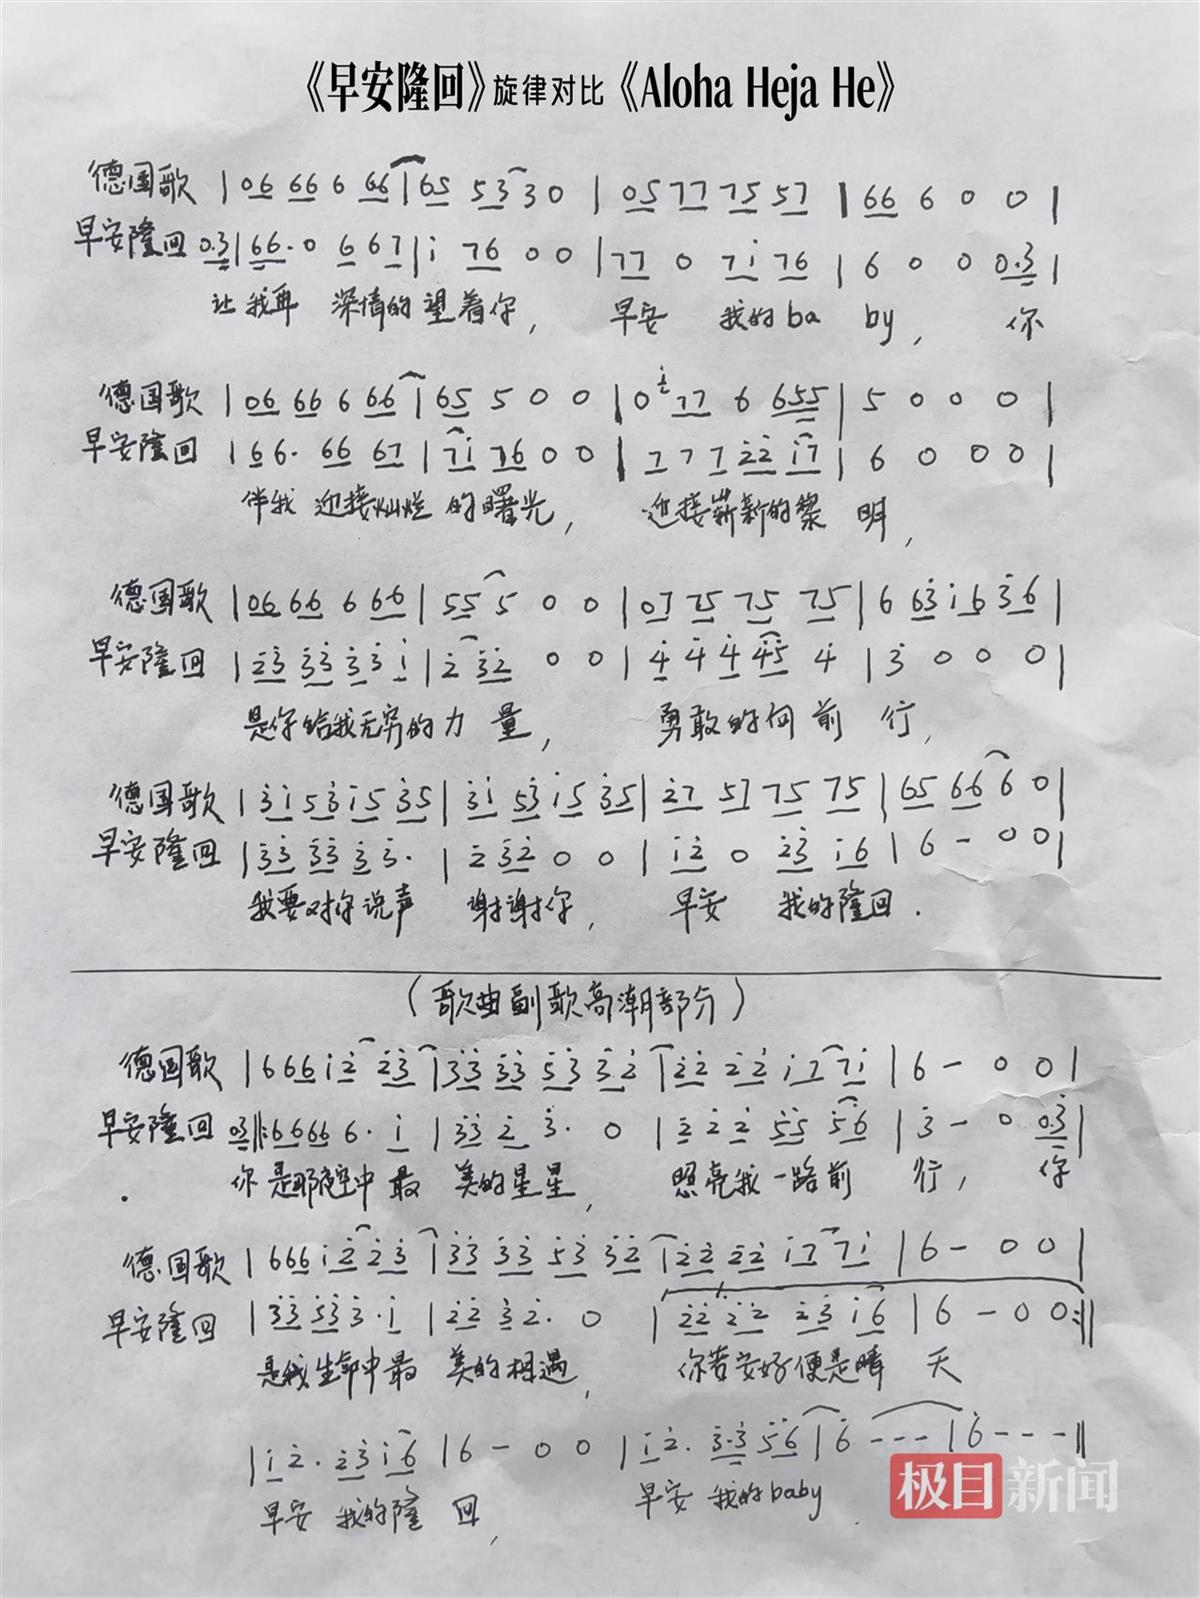 《早安隆回》旋律对比《Aloha Heja He》
德国歌 | 06 66 6 66 | 65 5 3 3 0 | 05 77 75 57 | 66 6 0 0 |
早安隆回 0.3 | 66. 0 6 67 | i 76 0 0 | 77 0 7i 76 | 6 0 0 0.3 |
让我再 深情的望着你, 早安 我的ba by, 你
德国歌 | 06 66 6 66 | 65 5 0 0 | 0 i 77 6 655 | 5 0 0 0 |
早安隆回 | 66. 66 67 | 7i 76 0 0 | 7 7 7 2̇2̇ i7 | 6 0 0 0 |
伴我 迎接灿烂 的曙光, 迎接崭新的黎 明,
德国歌 | 06 66 6 66 | 55 5 0 0 | 07 75 75 75 | 6 63̇ i6 3̇6 |
早安隆回 | 2̇3̇ 3̇3̇ 3̇ 3̇ i | 2̇ 3̇2̇ 0 0 | 4̇ 4̇ 4̇ 4̇5̇ 4̇ | 3̇ 0 0 0 |
是你给我无穷的力 量, 勇敢的向前 行,
德国歌 | 3̇i 53̇ i5 3̇5 | 3̇i 53̇ i5 3̇5 | 2̇7 57 75 75 | 65 66 6 0 |
早安隆回 | 3̇3̇ 3̇3̇ 3̇ 3̇. | 2̇ 3̇2̇ 0 0 | i2̇ 0 2̇3̇ i6 | 6 - 0 0 |
我要对你说声 谢谢你, 早安 我的隆回.
(歌曲副歌高潮部分)
德国歌 | 6 66 i2̇ 2̇3̇ | 3̇3̇ 3̇3̇ 5̇3̇ 3̇2̇ | 2̇2̇ 2̇2̇ i7 7i | 6 - 0 0 |
早安隆回 0.3̇ ‖: 6666 6. i | 3̇3̇ 2̇ 3̇. 0 | 2̇ 2̇ 2̇ 5̇5̇ 5̇6̇ | 3̇ - 0 0.3̇ |
你 是那夜空中最 美的星星, 照亮我一路前 行, 你
德国歌 | 666 i2̇ 2̇3̇ | 3̇3̇ 3̇3̇ 5̇3̇ 3̇2̇ | 2̇2̇ 2̇2̇ i7 7i | 6 - 0 0 |
早安隆回 | 3̇3̇ 5̇3̇ 3̇. i | 2̇2̇ 3̇ 2̇. 0 | 2̇2̇ 2̇2̇ 2̇3̇ i6 | 6 - 0 0 :‖
是我生命中最 美的相遇, 你若安好便是晴 天
| i 2̇. 2̇3̇ i6 | 6 - 0 0 | i 2̇. 3̇.3̇ 5̇6̇ | 6̇ - - - | 6̇ - - - ‖
早安 我的隆 回, 早安 我的baby
极目新闻